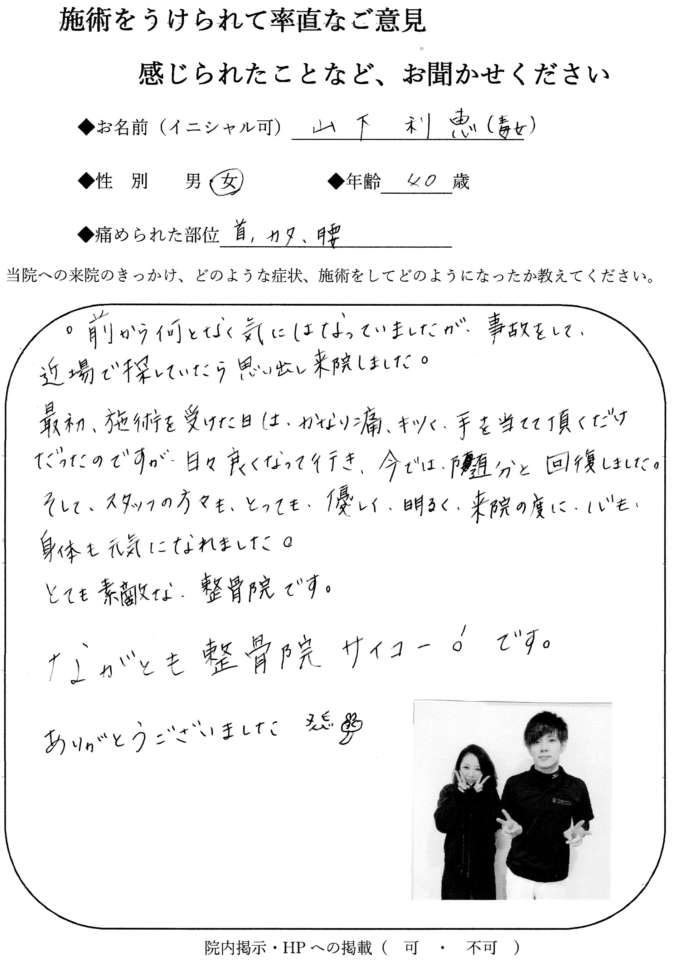 施術をうけられて率直なご意見
感じられたことなど、お聞かせください
◆お名前（イニシャル可） 山下 利恵(毒女)
◆性 別 男・女 ◆年齢 40 歳
◆痛められた部位 首,カタ、腰
当院への来院のきっかけ、どのような症状、施術をしてどのようになったか教えてください。
。前から何となく気にはなっていましたが、事故をして、
近場で探していたら思い出し来院しました。
最初、施術を受けた日は、かなり痛、キツく、手を当てて頂くだけ
だったのですが、日々良くなって行き、今では、随分と回復しました。
そして、スタッフの方々も、とっても、優しく、明るく、来院の度に、心も、
身体も元気になれました。
とても素敵な、整骨院です。
ながとも整骨院サイコー!です。
ありがとうございました
院内掲示・HPへの掲載（ 可 ・ 不可 ）